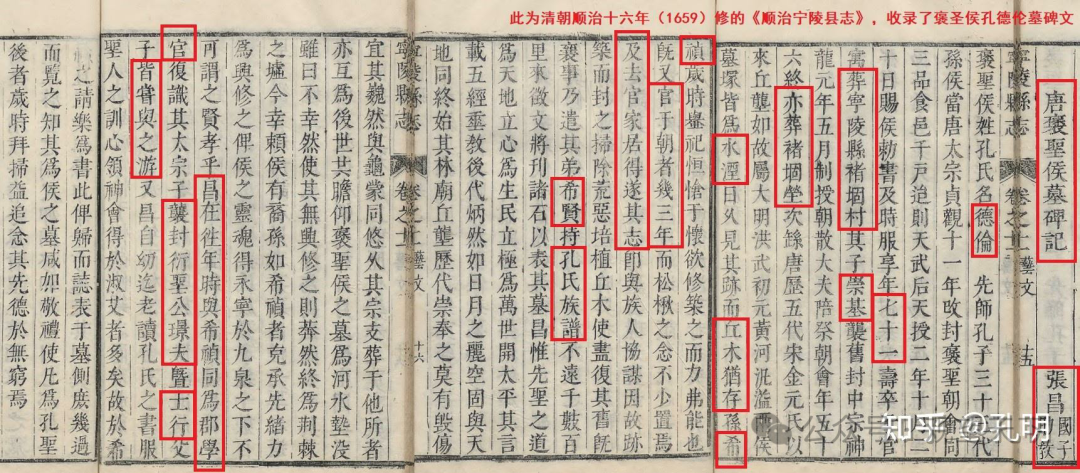 此为清朝顺治十六年（1659）修的《顺治宁陵县志》，收录了褒圣侯孔德伦墓碑文
唐褒聖侯墓碑記 張昌國子
寧陵縣志 卷之 藝文 十五
褒聖侯姓孔氏名德倫 先師孔子三十三代
孫侯當唐太宗貞觀十一年改封褒聖朝會同
三品食邑千戸迨則天武后天授二年十二月二
十日賜侯勅書及時服享年七十一壽卒于官
寓葬寧陵縣褚堌村其子崇基襲舊封中宗神
龍元年五月制授朝散大夫陪祭朝會年五十
六終亦葬褚堌坐次錄唐歷五代宋金元氏以
來丘壟如故屬大明洪武初元黃河汎溢兩侯
墓塚皆爲水湮日乆見其跡而丘木猶存孫希
禎歲時墓祀恒愴于懷欲修築之而力弗能也
旣又官于朝者幾三年而松楸之念不少置焉
及去官家居得遂其志卽與族人協謀因故跡
築而封之掃除荒惡培植丘木使盡復其舊旣
襄事乃遣其弟希賢持孔氏族譜不遠千數百
里來徵文將刊諸石以表其墓昌惟先聖之道
爲天地立心爲生民立極爲萬世開太平其言
載五經垂教後代炳然如日月之麗空固與天
地同終始其林廟丘壟歷代崇奉之莫有毀傷
寧陵縣志 卷之 藝文 十六
宜其巍然與龜蒙同悠乆其宗支葬于他所者
亦互爲後世共瞻仰褒聖侯之墓爲河水墊没
雖曰不幸然使其無興修之則莽然終爲荆棘
之墟今幸頼侯有裔孫如希禎者克承先緒力
爲興修之俾侯之靈魂得永寧於九泉之下不
可謂之賢孝乎昌在徃年時與希禎同爲郡學
官復識其太宗子襲封衍聖公璟夫曁士行父
子皆甞與之游又昌自幼迄老讀孔氏之書服
聖人之訓心領神會得於淑艾者多矣故於希
之請樂爲書此俾歸而誌表于墓側庶幾過
而覽之知其爲侯之墓咸如敬禮使凡爲孔聖
後者歲時拜掃益追念其先德於無窮焉
知乎 @孔明